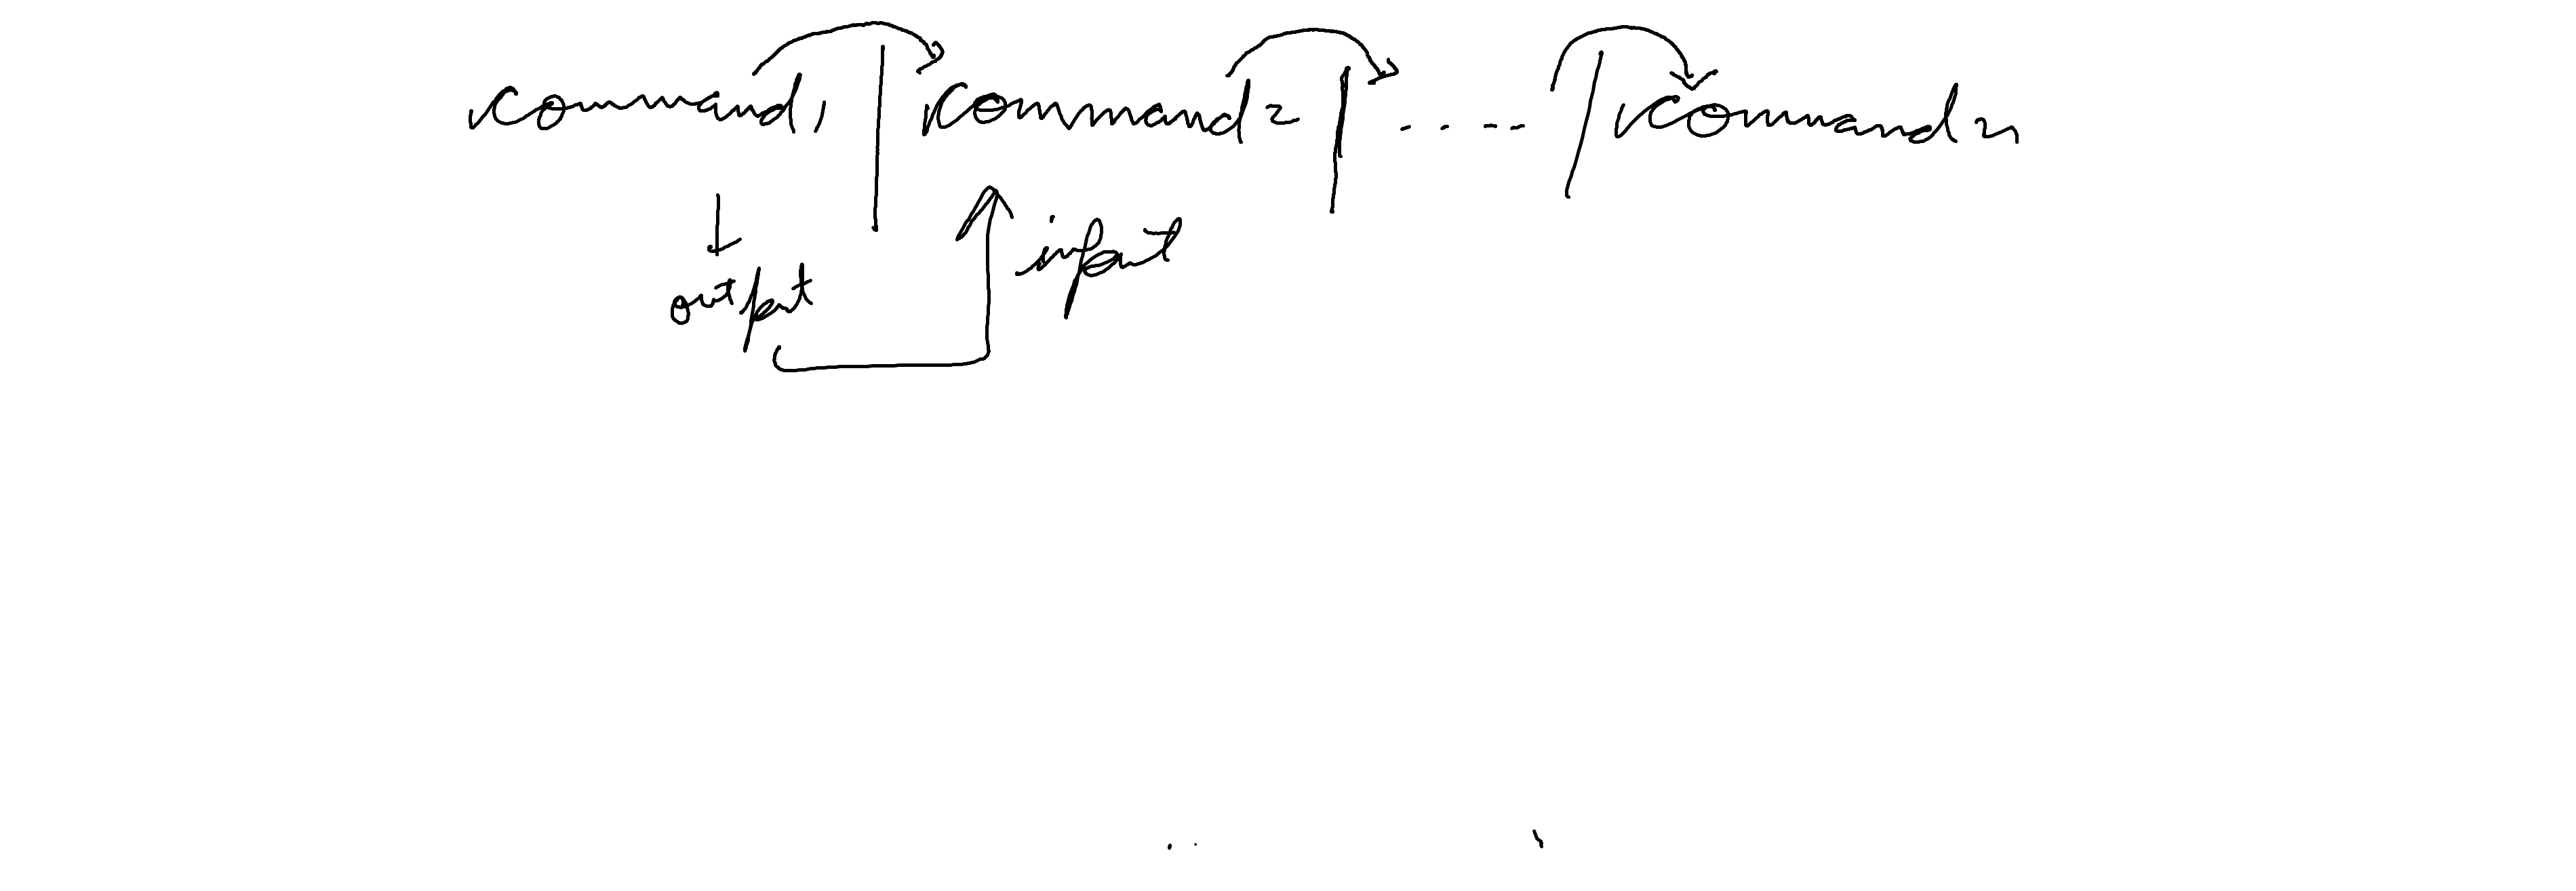 command1 | command2 | ..... | commandn
input
output